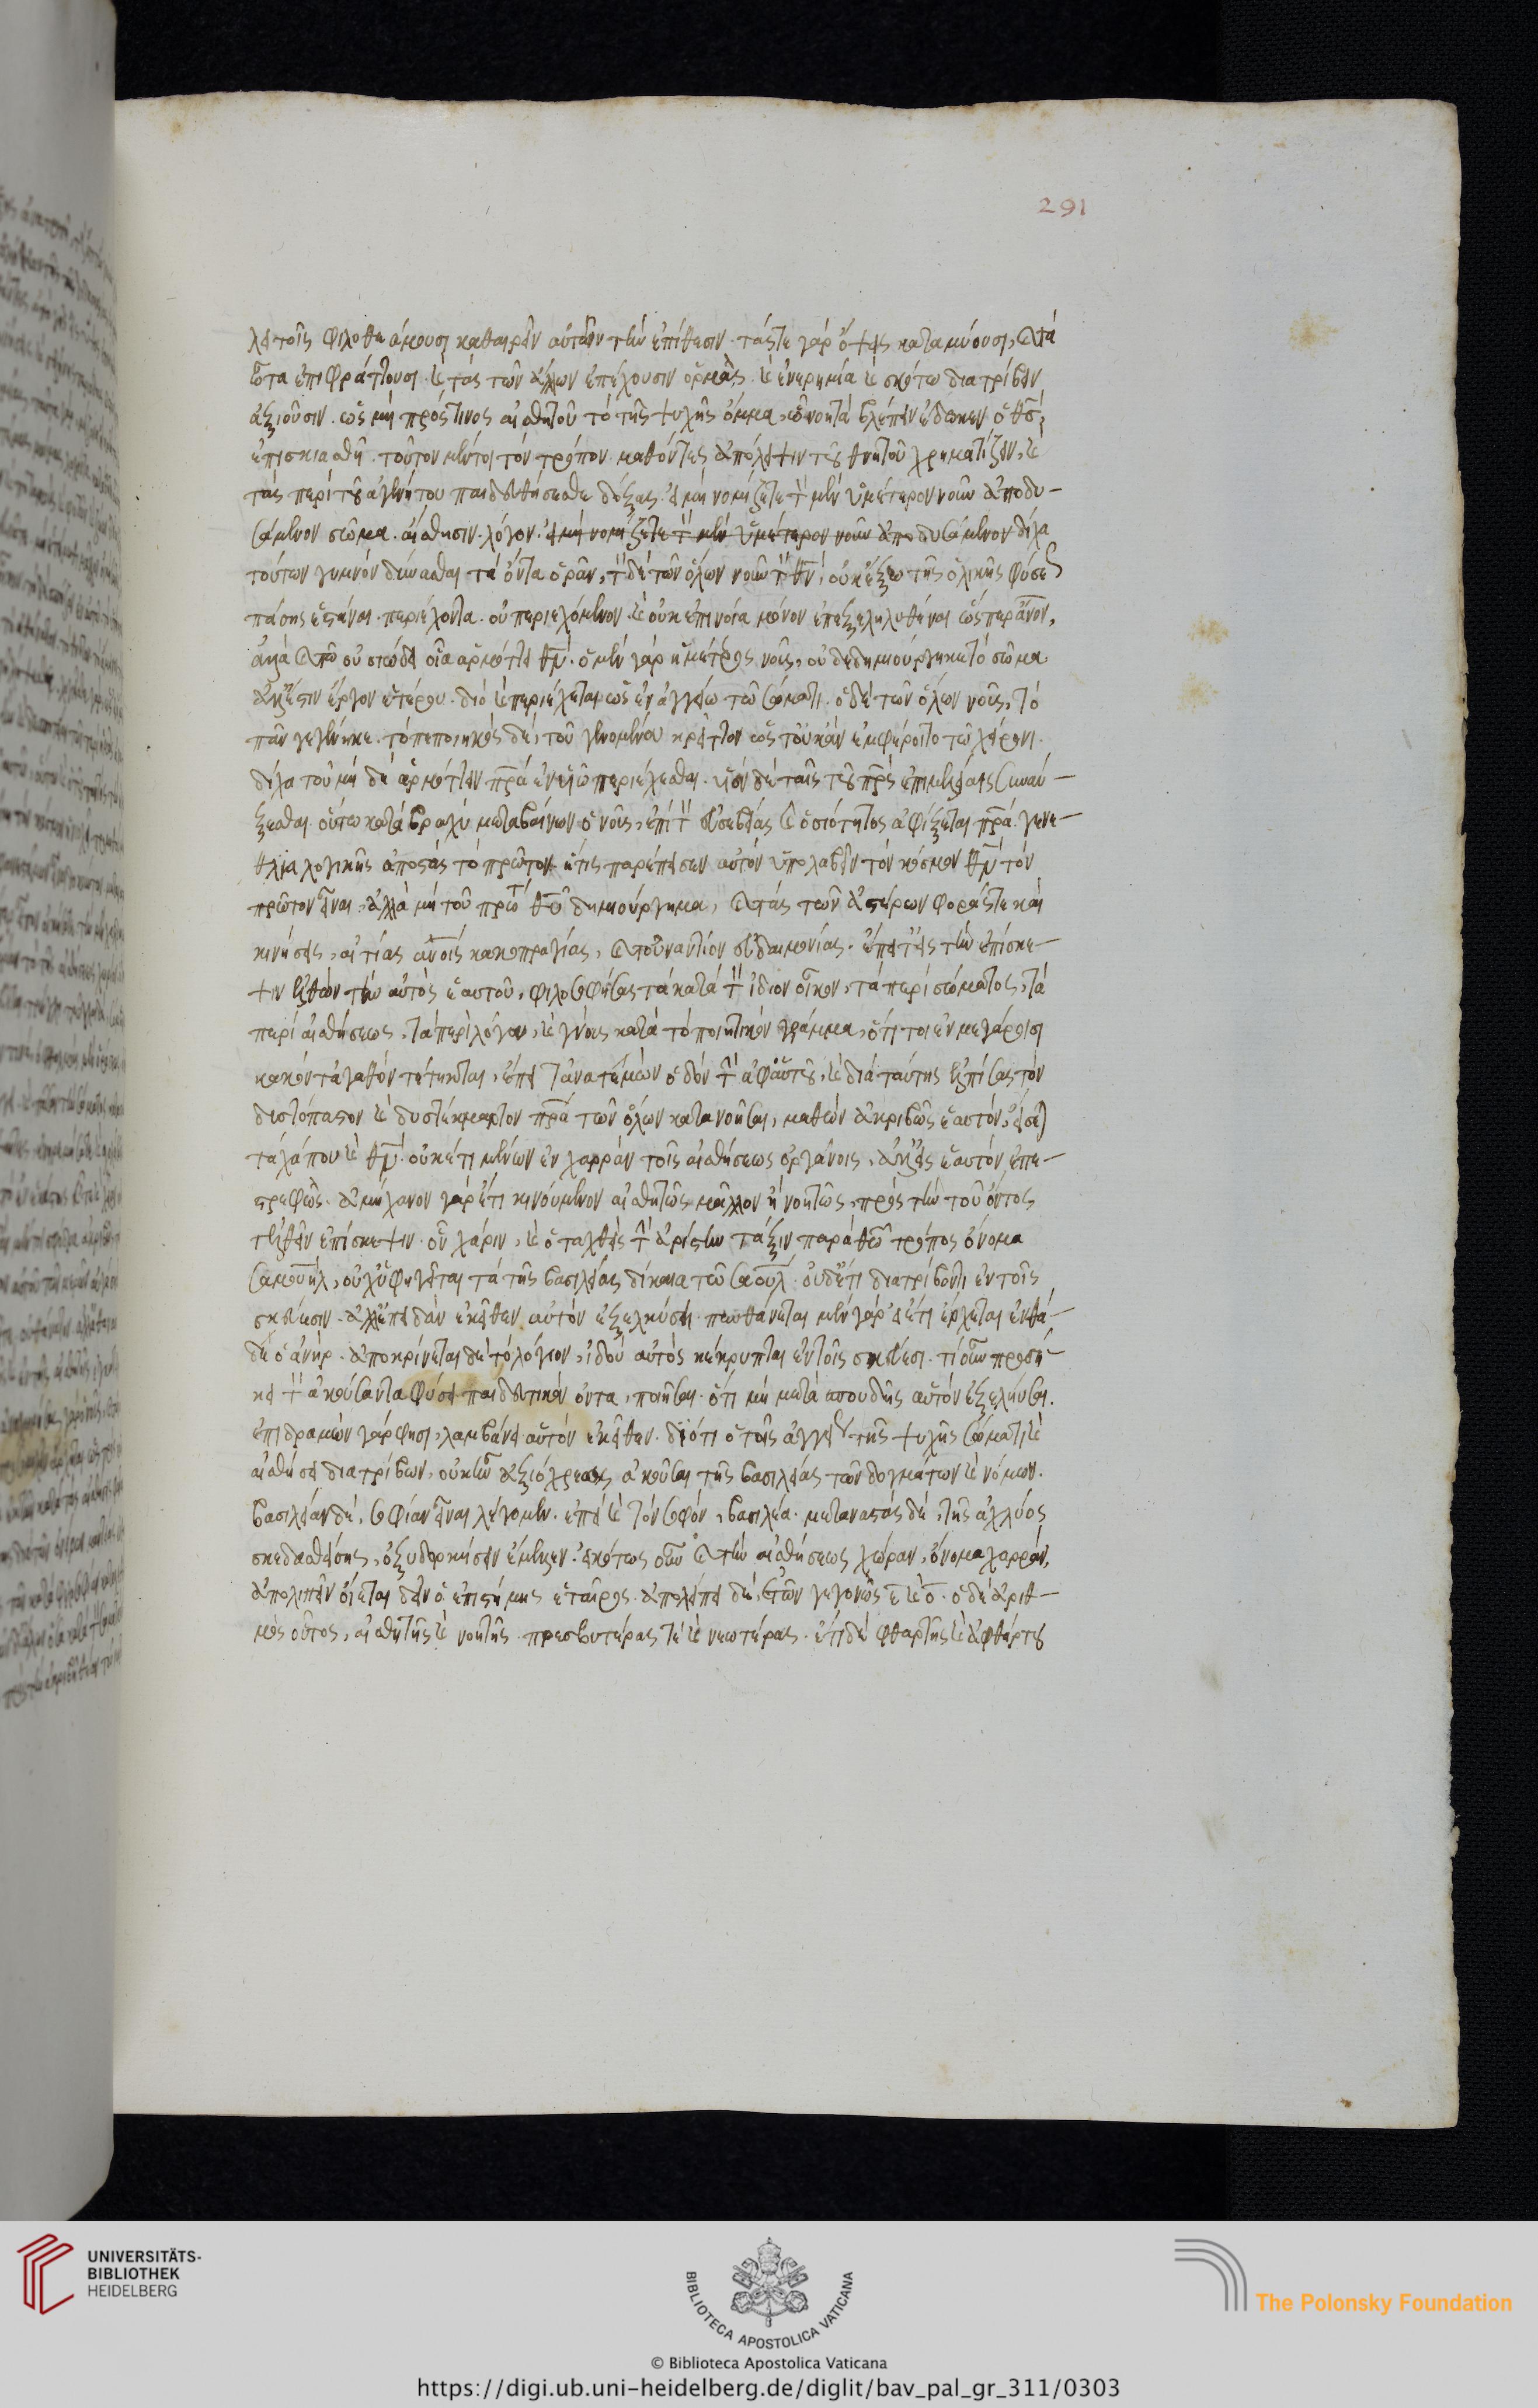 λει τοῖς φιλοθεάμουσι καθαιρεῖν αὐτῶν τὴν ἐπίθεσιν. τάς τε γὰρ ὄψεις καταμύουσι, καὶ τὰ
ὦτα ἐπιφράττουσι. καὶ τὰς τῶν ἄλλων ἐπέχουσιν ὁρμάς. καὶ ἐν ἐρημία καὶ σκότω διατρίβειν
ἀξιοῦσιν. ὡς μὴ πρός τινος αἰσθητοῦ τὸ τῆς ψυχῆς ὄμμα, ὧ νοητὰ βλέπειν ἔδωκεν ὁ θς,
ἐπισκιασθῆ. τοῦτον μέντοι τὸν τρόπον μαθόντες ἀπόλειψιν τοῦ θνητοῦ χρηματίζειν, καὶ
τὰς περὶ τοῦ ἀγενήτου παιδευθήσεσθε δόξας. εἰ μὴ νομίζετε τὸν μὲν ὑμέτερον νοῦν ἀποδυ-
σάμενον σῶμα. αἴσθησιν. λόγον. εἰ μὴ νομίζετε τὸν μὲν ὑμέτερον νοῦν ἀποδυσάμενον δίχα
τούτων γυμνὸν δύνασθαι τὰ ὄντα ὁρᾶν, τὸν δὲ τῶν ὅλων νοῦν τὸν θν, οὐκ ἔξω τῆς ὑλικῆς φύσεως
πάσης ἑστάναι. περιέχοντα. οὐ περιεχόμενον. καὶ οὐκ ἐπινοία μόνον ἐπεξεληλυθέναι ὥσπερ ἄνον,
ἀλλὰ καὶ τῶ οὐσιώδει οἷα ἁρμόττει θν. ὁ μὲν γὰρ ἡμέτερος νοῦς, οὐ δεδημιούργηκε τὸ σῶμα
ἀλλ' ἔστιν ἔργον ἑτέρου. διὸ καὶ περιέχεται ὡς ἐν ἀγγείω τῶ σώματι. ὁ δὲ τῶν ὅλων νοῦς, τὸ
πᾶν γεγένηκε. τὸ πεποιηκὸς δὲ, τοῦ γενομένου κρεῖττον ὥστ' οὐκ ἂν ἐμφέροιτο τῶ χείρονι.
δίχα τοῦ μὴ δὲ ἁρμόττειν πρα ἐν υἱῶ περιέχεσθαι. υἱὸν δὲ ταῖς τοῦ πρς ἐπιμελείαις συναύ-
ξεσθαι. οὕτω κατὰ βραχὺ μεταβαίνων ὁ νοῦς, ἐπὶ τὸν εὐσεβείας καὶ ὁσιότητος ἀφίξεται πρα. γενε-
θλιαλογικῆς ἀποστὰς τὸ πρῶτον ἥτις παρέπεισεν αὐτὸν ὑπολαβεῖν τὸν κόσμον θν τὸν
πρῶτον εἶναι. ἀλλὰ μὴ τοῦ πρώτου θυ δημιούργημα, καὶ τὰς τῶν ἀστέρων φοράς τε καὶ
κινήσεις, αἰτίας ἀνοις κακοπραγίας, καὶ τοὐναντίον εὐδαιμονίας. ἔπειτ' εἰς τὴν ἐπίσκε-
ψιν ἐλθὼν τὴν αὐτὸς ἑαυτοῦ, φιλοσοφήσας τὰ κατὰ τὸν ἴδιον οἶκον, τὰ περὶ σώματος, τὰ
περὶ αἰσθήσεως, τὰ περὶ λόγου, καὶ γνοὺς κατὰ τὸ ποιητικὸν γράμμα, ὅτι τοι ἐν μεγάροισι
κακόν τ' ἀγαθόν τε τέτυκται, ἔπειτ' ἀνατεμὼν ὁδὸν τὴν ἀφ' αὑτοῦ, καὶ διὰ ταύτης ἐλπίσας τὸν
δυστόπαστον καὶ δυστέκμαρτον πρα τῶν ὅλων κατανοῆσαι, μαθὼν ἀκριβῶς ἑαυτὸν, εἴσεται
τάχα που καὶ θν. οὐκέτι μένων ἐν χαρρὰν τοῖς αἰσθήσεως ὀργάνοις, ἀλλ' εἰς ἑαυτὸν ἐπι-
στρεφεὶς. ἀμήχανον γὰρ ἔτι κινούμενον αἰσθητῶς μᾶλλον ἢ νοητῶς, πρὸς τὴν τοῦ ὄντος
ἐλθεῖν ἐπίσκεψιν. οὗ χάριν, καὶ ὁ ταχθεὶς τὴν ἀρίστην τάξιν παρὰ θεῶ τρόπος ὄνομα
σαμουὴλ, οὐχ ὑφηγεῖται τὰ τῆς βασιλείας δίκαια τῶ σαοὺλ. οὐδ' ἔτι διατρίβοντι ἐν τοῖς
σκεύεσιν. ἀλλ' ἐπειδὰν ἐκεῖθεν αὐτὸν ἐξελκύση. πυνθάνεται μὲν γὰρ εἰ ἔτι ἔρχεται ἐνθά-
δε ὁ ἀνήρ. ἀποκρίνεται δὲ τὸ λόγιον, ἰδοὺ αὐτὸς κέκρυπται ἐν τοῖς σκεύεσι. τί οὖν προσή-
κει τὸν ἀκούσαντα φύσει παιδευτικὸν ὄντα, ποιῆσαι. ὅτι μὴ μετὰ σπουδῆς αὐτὸν ἐξελκύσαι.
ἐπιδραμὼν γάρ φησι, λαμβάνει αὐτὸν ἐκεῖθεν. διότι ὁ τοῖς ἀγγείοις τῆς ψυχῆς σώματι καὶ
αἰσθήσει διατρίβων, οὐκ ἦν ἀξιόχρεως ἀκοῦσαι τῆς βασιλείας τῶν δογμάτων καὶ νόμων.
βασιλείαν δὲ, σοφίαν εἶναι λέγομεν. ἐπεὶ καὶ τὸν σοφόν, βασιλέα. μεταναστὰς δὲ, τῆς ἀχλύος
σκεδασθείσης, ὀξυδορκήσειν ἔμελλεν. εἰκότως οὖν καὶ τὴν αἰσθήσεως χώραν, ὄνομα χαρράν,
ἀπολιπεῖν οἴεται δεῖν ὁ ἐπιστήμης ἑταῖρος. ἀπολείπει δὲ, ἐτῶν γεγονὼς ε καὶ ο. ὁ δὲ ἀριθ-
μὸς οὗτος, αἰσθητῆς καὶ νοητῆς. πρεσβυτέρας τὲ καὶ νεωτέρας. ἔτι δὲ φθαρτῆς καὶ ἀφθάρτου
291
UNIVERSITÄTS-
BIBLIOTHEK
HEIDELBERG
BIBLIOTECA APOSTOLICA VATICANA
The Polonsky Foundation
© Biblioteca Apostolica Vaticana
https://digi.ub.uni-heidelberg.de/diglit/bav_pal_gr_311/0303